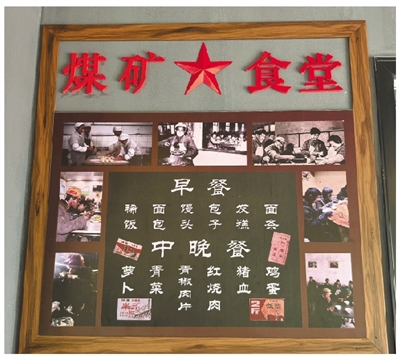 煤矿★食堂
早餐
稀饭 面包 馒头 包子 发糕 面条
中晚餐
萝卜 青菜 青椒肉片 红烧肉 猪血 鸡蛋